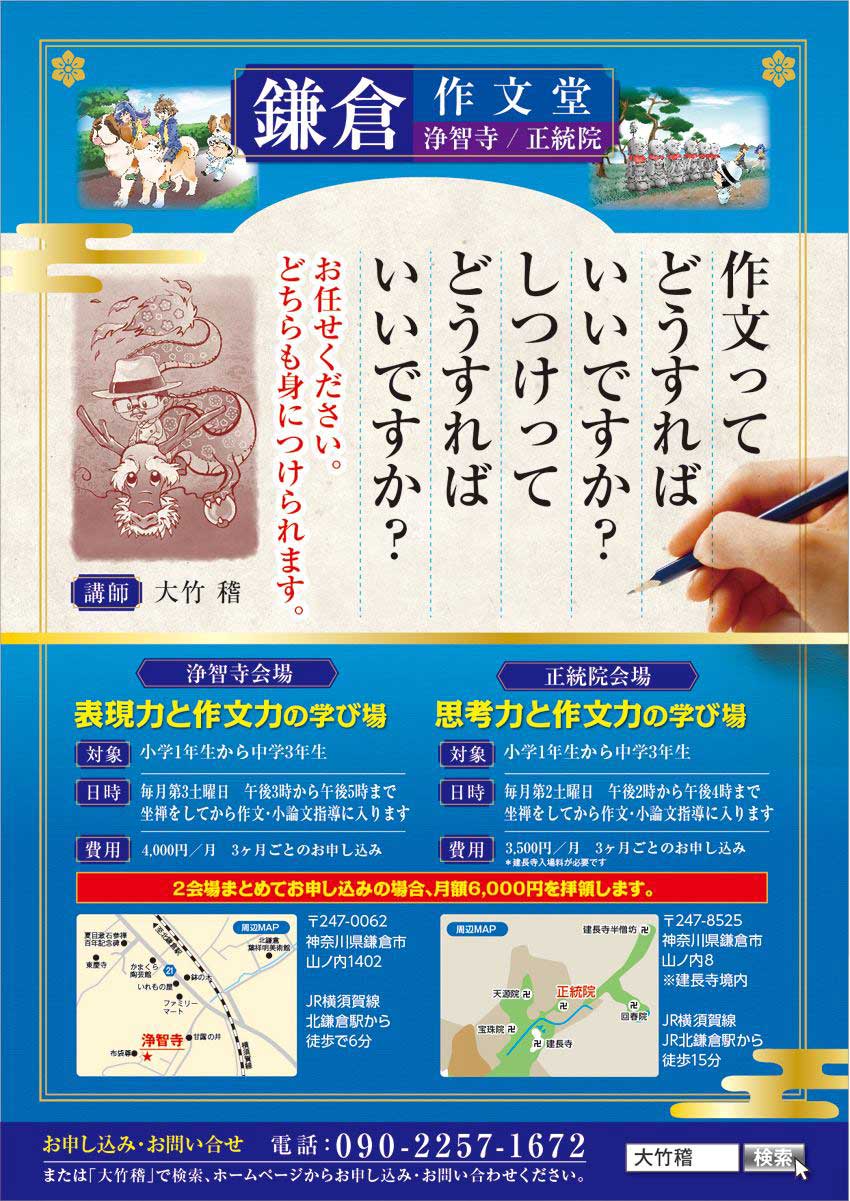 鎌倉
作文堂
浄智寺/正統院
作文って
どうすれば
いいですか?
しつけって
どうすれば
いいですか?
お任せください。
どちらも身につけられます。
講師 大竹 稽
浄智寺会場
表現力と作文力の学び場
対象 小学1年生から中学3年生
日時 毎月第3土曜日 午後3時から午後5時まで
坐禅をしてから作文・小論文指導に入ります
費用 4,000円/月 3ヶ月ごとのお申し込み
正統院会場
思考力と作文力の学び場
対象 小学1年生から中学3年生
日時 毎月第2土曜日 午後2時から午後4時まで
坐禅をしてから作文・小論文指導に入ります
費用 3,500円/月 3ヶ月ごとのお申し込み
*建長寺入場料が必要です
2会場まとめてお申し込みの場合、月額6,000円を拝領します。
周辺MAP
夏目漱石参禅
百年記念碑
至北鎌倉駅
北鎌倉
葉祥明美術館
東慶寺
かまくら
陶芸館
21
鉢の木
いれもの屋
ファミリー
マート
浄智寺
甘露の井
布袋尊
横須賀線
〒247-0062
神奈川県鎌倉市
山ノ内1402
JR横須賀線
北鎌倉駅から
徒歩で6分
周辺MAP
建長寺半僧坊
正統院
天源院
回春院
宝珠院
建長寺
〒247-8525
神奈川県鎌倉市
山ノ内8
※建長寺境内
JR横須賀線
JR北鎌倉駅から
徒歩15分
お申し込み・お問い合せ 電話:090-2257-1672
または「大竹稽」で検索、ホームページからお申し込み・お問い合わせください。
大竹稽 検索